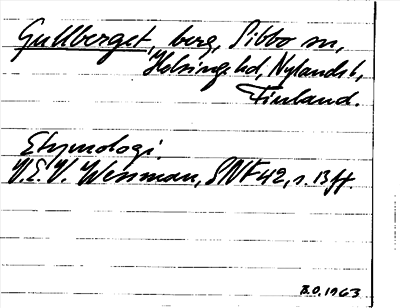 Gullberget, berg, Sibbo sn,
Helsinge hd, Nylands l,
Finland.
Etymologi.
V.E.V. Wessman, SNF 42, s. 13 ff.
B.O. 1963